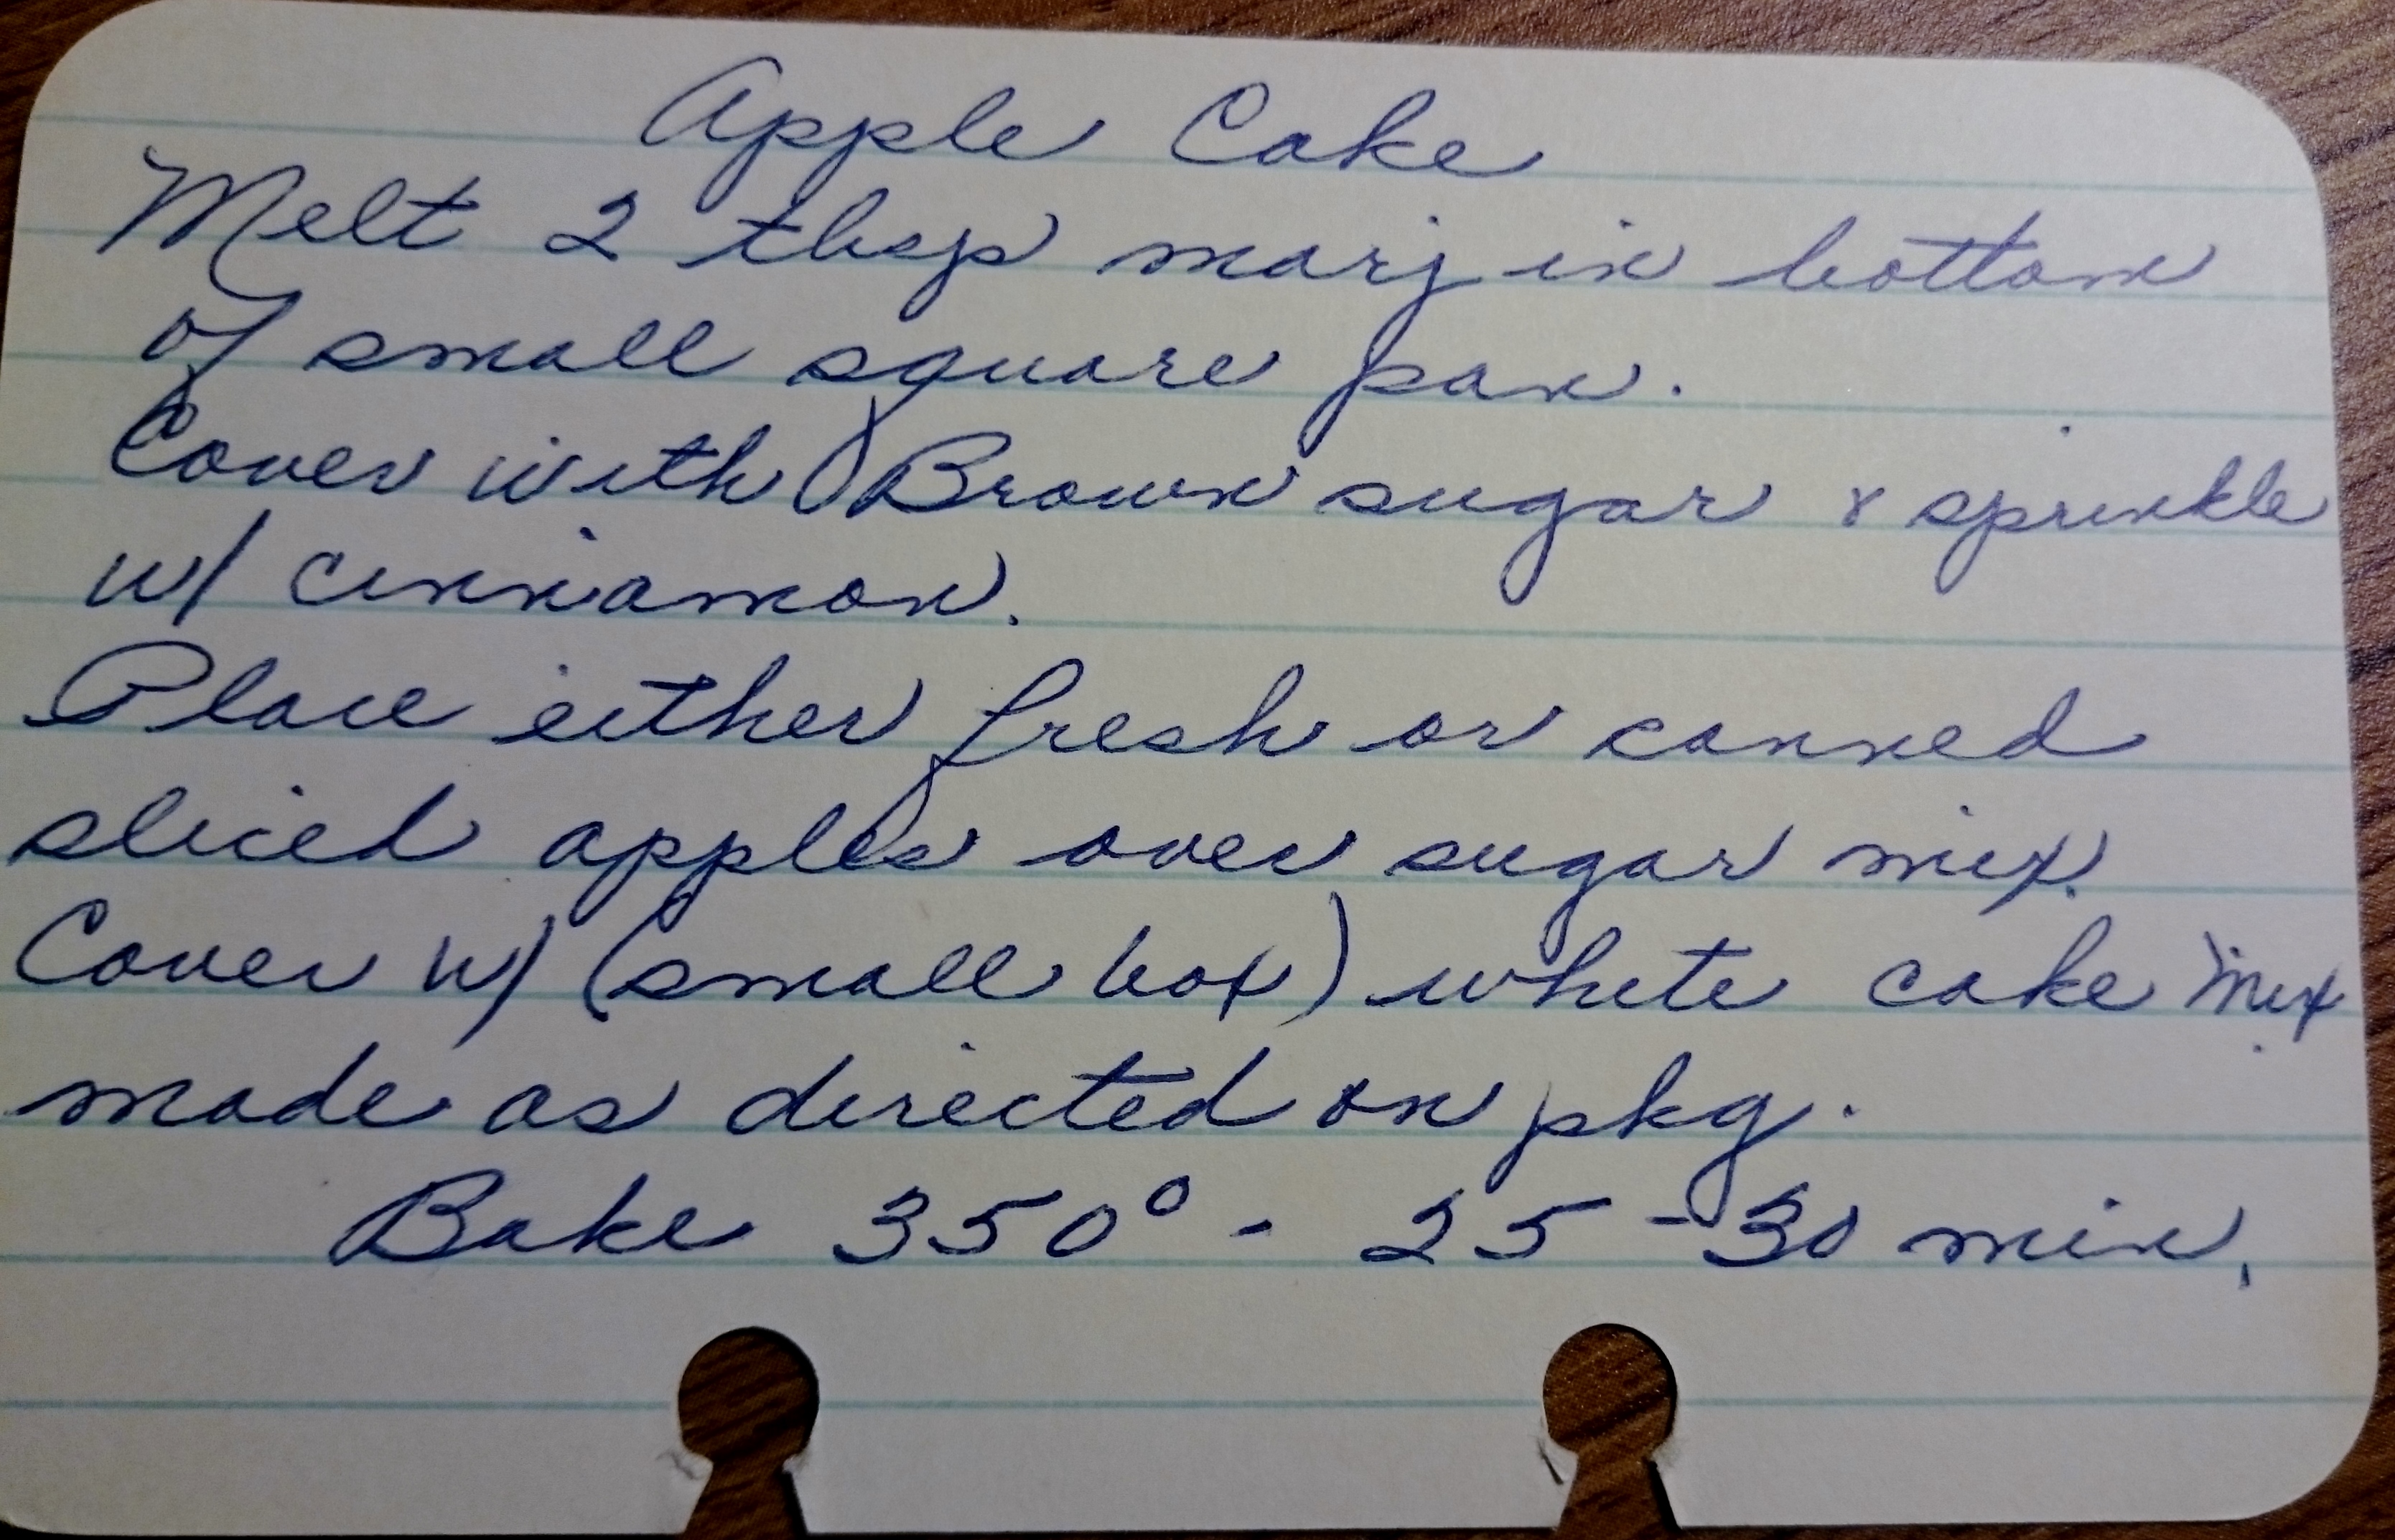 Apple Cake
Melt 2 tbsp marj in bottom
of small square pan.
Cover with Brown sugar & sprinkle
w/ cinnamon.
Place either fresh or canned
sliced apples over sugar mix.
Cover w/ (small box) white cake mix
made as directed on pkg.
Bake 350° - 25 - 30 min.